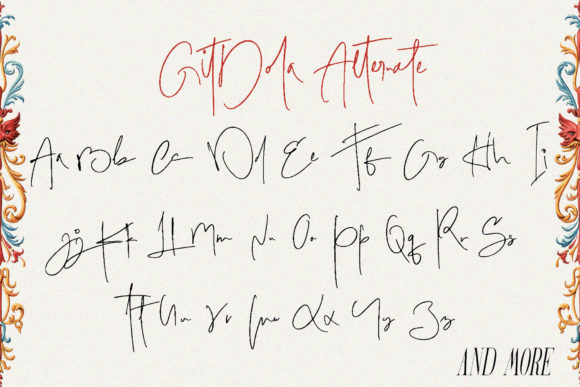 GitDola Alternate
Aa Bb Cc Dd Ee Ff Gg Hh Ii
Jj Kk Ll Mm Nn Oo Pp Qq Rr Ss
Tt Uu Vv Ww Xx Yy Zz
AND MORE